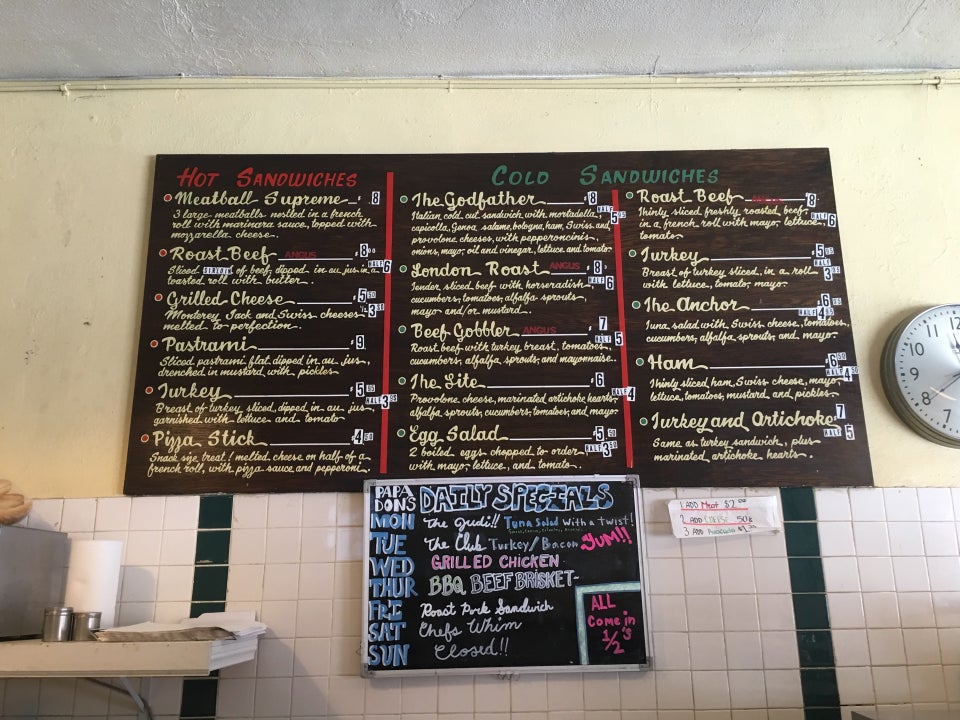 HOT SANDWICHES
Meatball Supreme 8
3 large meatballs nestled in a french
roll with marinara sauce, topped with
mozzarella cheese.
Roast Beef ANGUS 8
HALF 6
Sliced of beef, dipped in au jus in a
toasted roll with butter.
Grilled Cheese 5 50
3 50
Monterey Jack and Swiss cheeses
melted to perfection.
Pastrami 9
Sliced pastrami flat dipped in au jus,
drenched in mustard, with pickles
Turkey 5 95
HALF 3
Breast of turkey sliced, dipped in au jus,
garnished with lettuce and tomato
Pizza Stick 4 50
Snack size treat! melted cheese on half of a
french roll, with pizza sauce and pepperoni.
COLD SANDWICHES
The Godfather 8
HALF 5
Italian cold cut sandwich with mortadella,
capicolla, Genoa salame, bologna, ham, Swiss and
provolone cheeses, with pepperoncinis,
onions, mayo, oil and vinegar, lettuce, and tomato.
London Roast ANGUS 8
HALF 6
Tender, sliced beef with horseradish
cucumbers, tomatoes, alfalfa sprouts,
mayo and/or mustard.
Beef Gobbler ANGUS 7
5
Roast beef with turkey breast, tomatoes,
cucumbers, alfalfa, sprouts, and mayonnaise.
The Lite 6
HALF 4
Provolone cheese, marinated artichoke hearts,
alfalfa sprouts, cucumbers, tomatoes, and mayo
Egg Salad 5 50
HALF 3
2 boiled eggs chopped to order
with mayo, lettuce, and tomato.
Roast Beef ANGUS 8
HALF 6
Thinly sliced freshly roasted beef
in a french roll with mayo, lettuce,
tomato.
Turkey 5 95
HALF 3
Breast of turkey sliced, in a roll
with lettuce, tomato, mayo.
The Anchor 6 95
HALF 4
Tuna salad with Swiss cheese, tomatoes,
cucumbers, alfalfa sprouts, and mayo.
Ham 6 50
HALF 4
Thinly sliced ham, Swiss cheese, mayo,
lettuce, tomatoes, mustard, and pickles.
Turkey and Artichoke 7
HALF 5
Same as turkey sandwich, plus
marinated artichoke hearts.
PAPA DON'S DAILY SPECIALS
MON The Judi!! Tuna Salad With a twist!
TUE The Club Turkey/Bacon YUM!!
WED GRILLED CHICKEN
THUR BBQ BEEF BRISKET
FRI Roast Pork Sandwich
SAT Chefs Whim
SUN Closed!!
ALL
Come in
1/2's
1 ADD Meat $2.00
2 ADD CHEESE 50¢
3 ADD Avocado
11 12
10
9
8
7